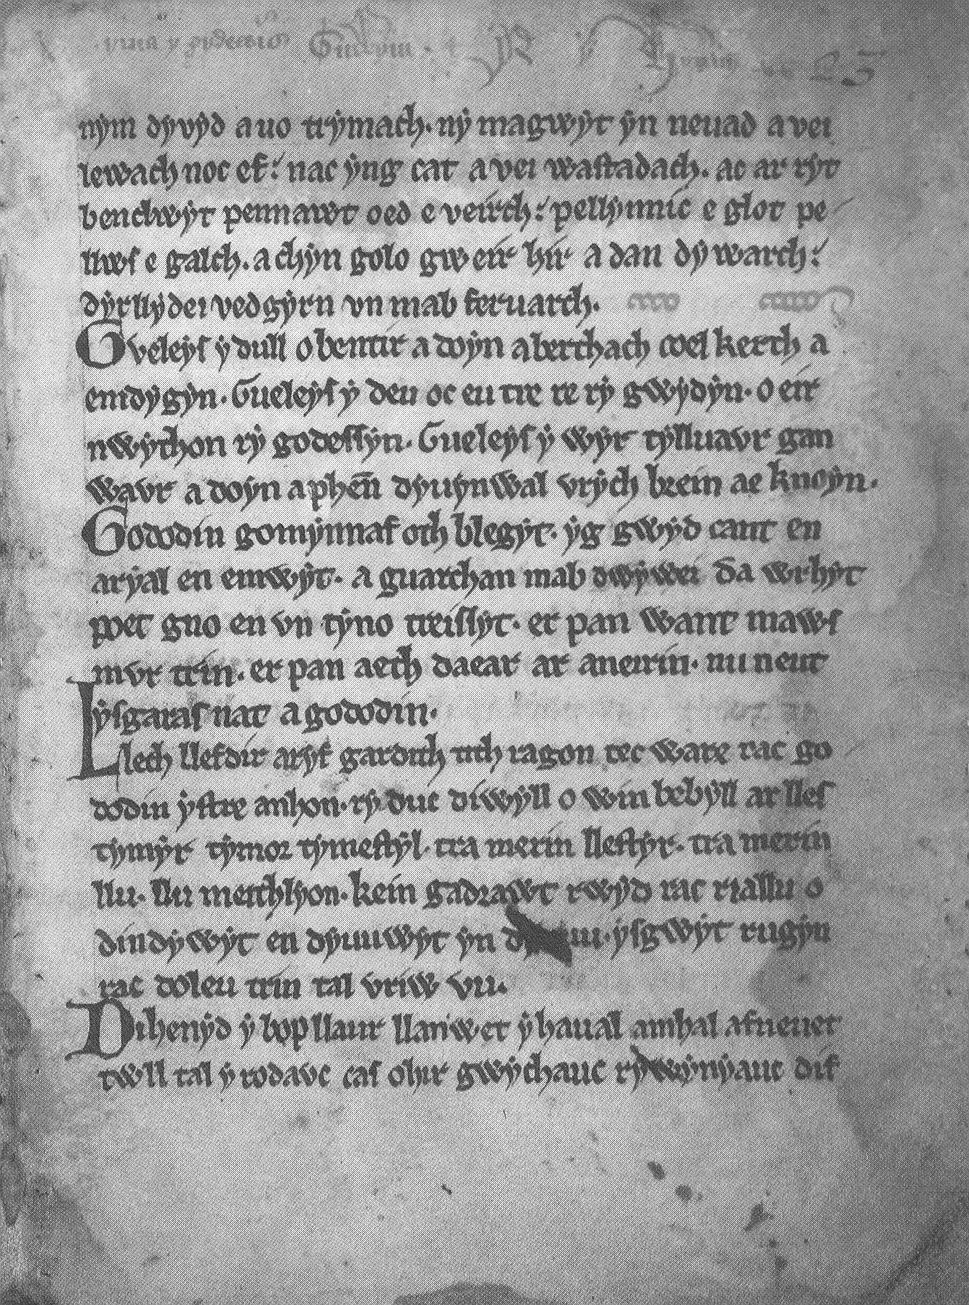 nẏm dẏvẏd a uo trẏmach. nẏ magwẏt ẏn neuad a vei
lewach noc ef; nac ẏng cat a vei wastadach. ac ar rẏt
benclwẏt pennawt oed e veirch; pellẏnnic e glot pe
llws e galch. a chẏn golo gweir hir a dan dẏwarch;
dẏrllẏdei vedgẏrn vn mab feruarch.
Gveleẏs ẏ dull o bentir a doẏn aberthach coel kerth a
emdẏgẏn. Gueleẏs ẏ deu oc eu tre re rẏ gwẏdẏn. o eir
nwẏthon rẏ godessẏn. Gueleẏs ẏ wẏr tẏlluavr gan
wavr a doẏn a phen dẏuẏnwal vrẏch brein ae knoẏn.
Gododin gomẏnnaf oth blegẏt. ẏg gwẏd cant en
arẏal en emwẏt. a guarchan mab dwẏwei da wrhẏt
poet gno en vn tẏno treissẏt. er pan want maws
mvr trin. er pan aeth daear ar aneirin. mi neut
ẏsgaras nat a gododin.
Llech llefdir arẏf gardith tith ragon tec ware rac go
dodin ẏstre anhon. rẏ duc diwẏll o win bebẏll ar lles
tẏmẏr tẏmor tẏmestẏl. tra merin llestẏr. tra merin
llu. llu meithlẏon. kein gadrawt rwẏd rac riallu o
dindẏwẏt en dẏuuwẏt ẏn ẏsgwẏt rugẏn
rac doleu trin tal vriw vu.
Dihenẏd ẏ bop llaur llanw et ẏ haual amhal afneuet
twll tal ẏ rodavc cas ohir gwẏchauc rẏwẏnẏauc dif